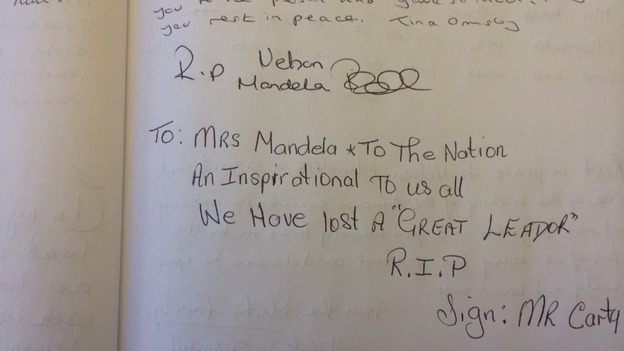 you rest in peace. Tina Ormsby
R.P Nelson
Mandela
To: MRS Mandela * To The Nation
An Inspirational To us all
We Have lost A "GREAT LEADOR"
R.I.P
Sign: MR Carty